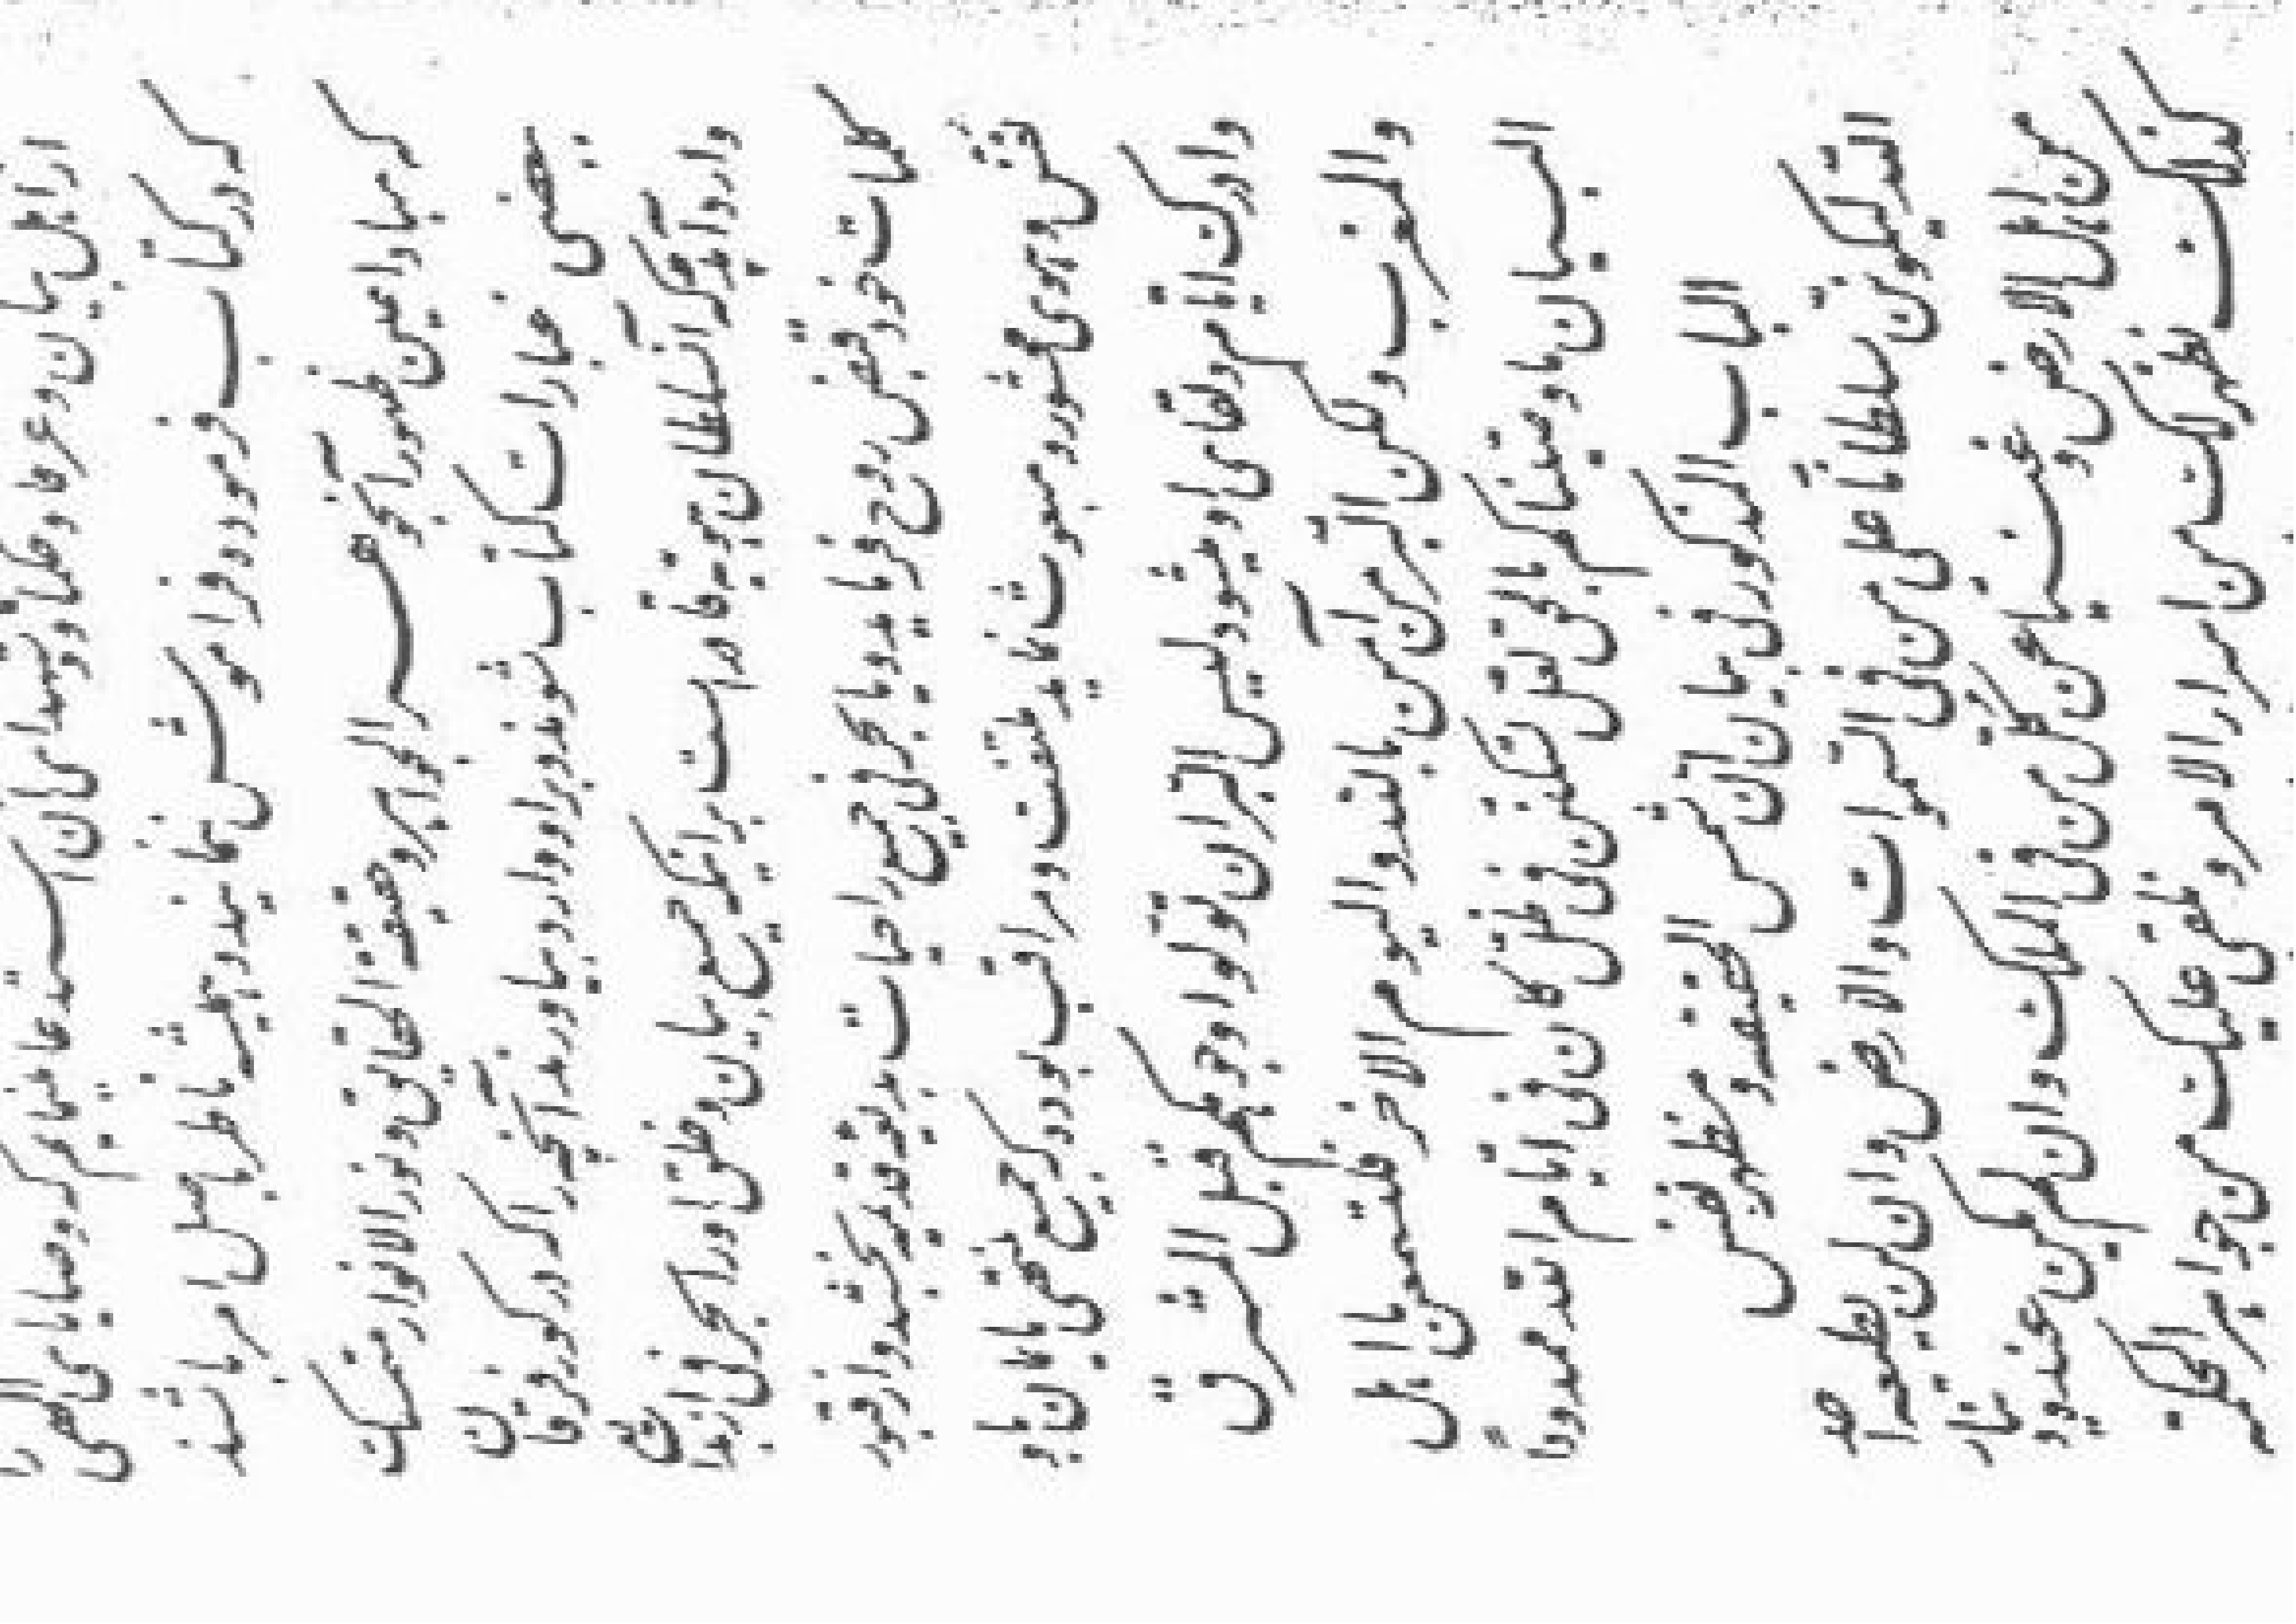 از اهل بیان و عرفا و حکما و شهدای آن استدعا مینمایم که وصایای الهی را
که در کتاب فرموده فراموش ننمایند و همیشه ناظر باصل امر باشند
که مبادا حین ظهور آنجوهر الجواهر و حقیقة الحقائق و نور الانوار متمسک
ببعضی عبارات کتاب شوند و بر او وارد بیاورند آنچه را که در کور فرقان
وارد آمد چه که آن سلطان هویه قادر است بر اینکه جمیع بیان و خلق او را بحرفی از بدایع
کلمات خود قبض روح فرماید و یا بحرفی جمیع را حیات بدیعه قدمیه بخشد و از قبور
نفس و هوی محشور و مبعوث نماید ملتفت و مراقب بوده که جمیع منتهی بایمان باو
و ادراک ایام و لقای او میشود لیس البرّ ان تولّوا وجوهکم قبل المشرق
و المغرب و لکن البرّ من آمن بالله و الیوم الاخر فاستمعن یا اهل
البیان ما وصیناکم بالحق لعلّ تسکنن فی ظلّ کان فی ایّام الله ممدوداً
الباب المذکور فی بیان انّ شمس الحقیقه و مظهر نفس
الله لیکوننّ سلطاناً علی من فی السّموات و الارض و ان لن یطیعه احد
من اهل الارض و غنیّاً عن کلّ من فی الملک و ان لم یکن عنده دینار
کذلک نظهر لک من اسرار الامر و نلقی علیک من جواهر الحکمة